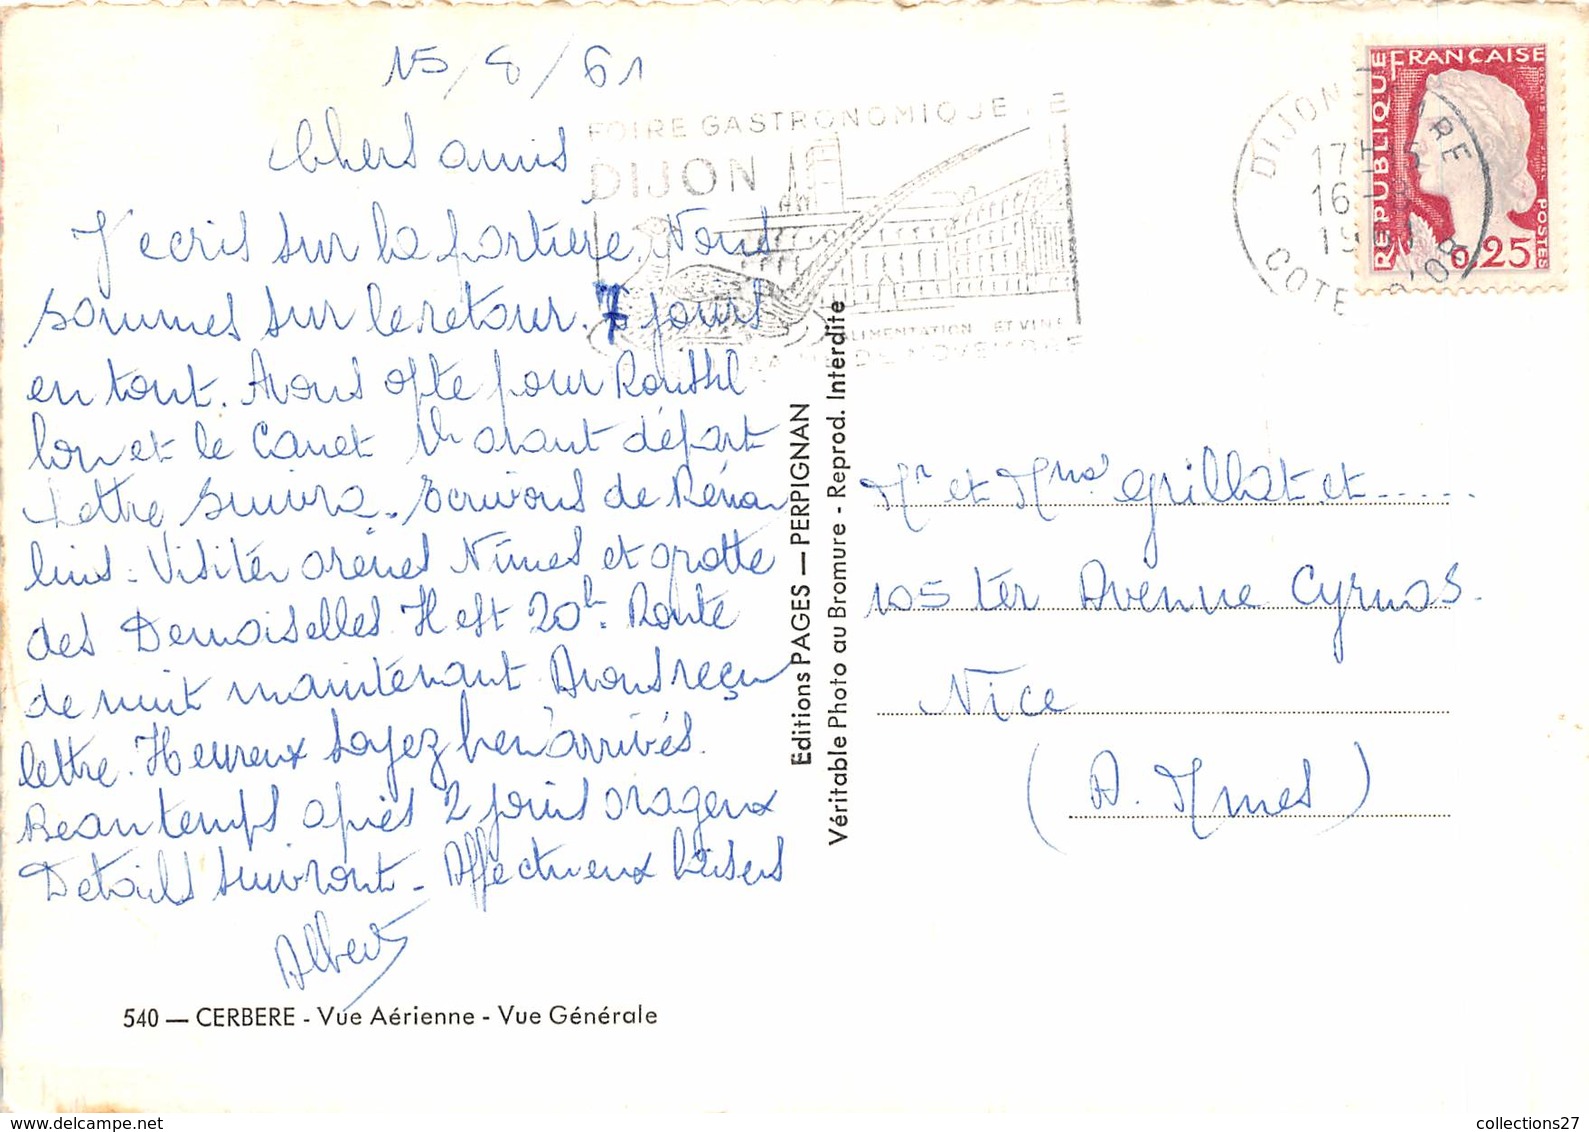 15/8/61
Chers amis
J'ecris sur la portière. Nous
sommes sur le retour. 7 jours
en tout. Avons opté pour Roussil
lon et le Canet 1h avant départ
Lettre suivra. Ecrivons de
Visiter arènes Nîmes et grotte
des Demoiselles. Il est 20h. Route
de nuit maintenant. Avons reçu
lettre. Heureux soyez bien arrivés.
Beau temps après 2 jours orageux
Details suivront - Affectueux baisers
Albert
540 — CERBERE - Vue Aérienne - Vue Générale
Editions PAGES — PERPIGNAN
Véritable Photo au Bromure - Reprod. Interdite
FOIRE GASTRONOMIQUE DE
DIJON
ALIMENTATION ET VINS
NOVEMBRE
DIJON GARE
17H15
16-8
1961
COTE D'OR
REPUBLIQUE FRANÇAISE
POSTES
0,25
Mr et Mme Grillat et .....
105 ter Avenue Cyrnos.
Nice
(A. Mmes)
collections27